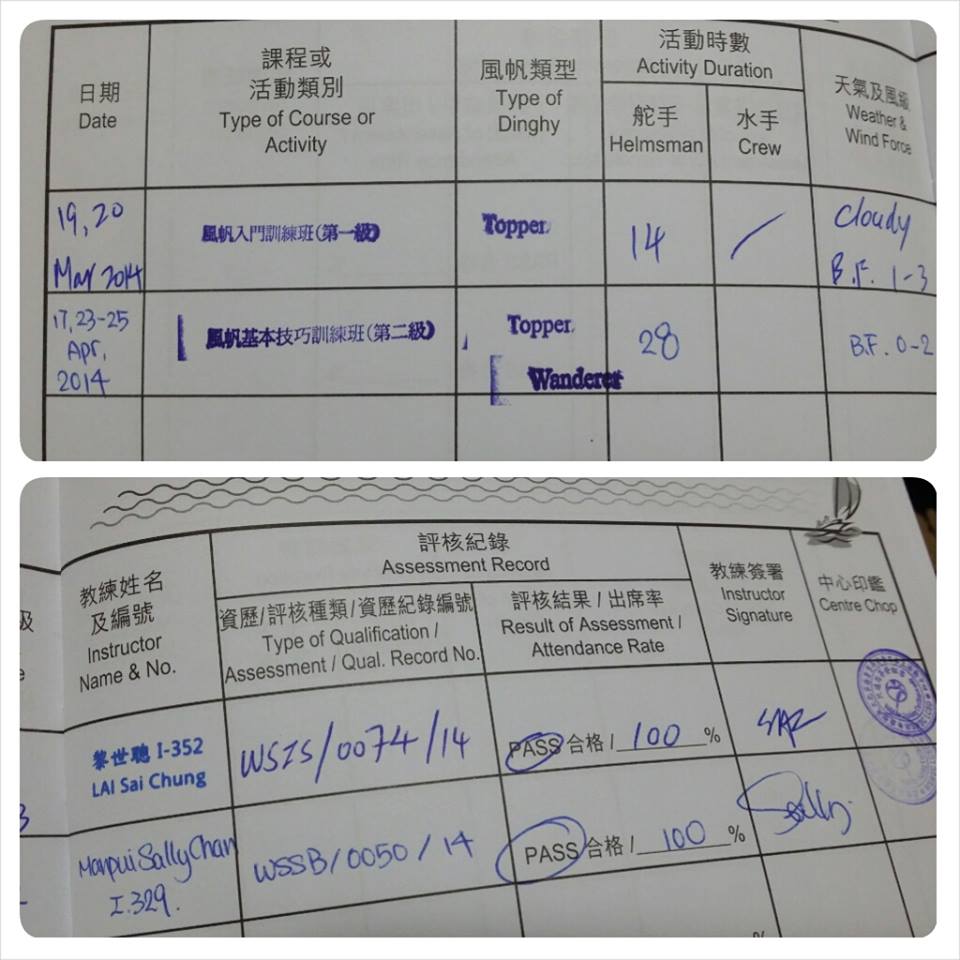 日期
Date
課程或
活動類別
Type of Course or
Activity
風帆類型
Type of
Dinghy
活動時數
Activity Duration
舵手
Helmsman
水手
Crew
天氣及風級
Weather &
Wind Force
19, 20
Mar 2014
風帆入門訓練班(第一級)
Topper
14
/
Cloudy
B.F. 1-3
17, 23-25
Apr,
2014
風帆基本技巧訓練班(第二級)
Topper
Wanderer
28
B.F. 0-2
教練姓名
及編號
Instructor
Name & No.
評核紀錄
Assessment Record
資歷/評核種類/資歷紀錄編號
Type of Qualification /
Assessment / Qual. Record No.
評核結果 / 出席率
Result of Assessment /
Attendance Rate
教練簽署
Instructor
Signature
中心印鑑
Centre Chop
級
e
黎世聰 I-352
LAI Sai Chung
WSIS/0074/14
PASS 合格 / 100 %
3
Manpui Sally Chan
I.329.
WSSB/0050/14
PASS 合格 / 100 %
Sally
%